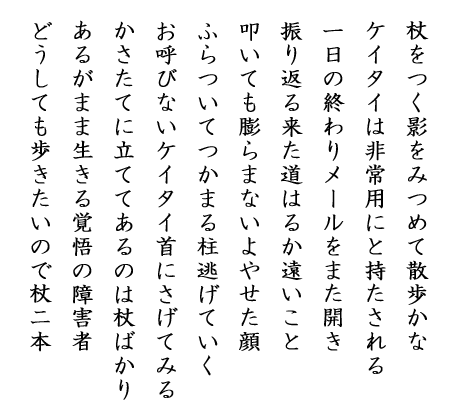 杖をつく影をみつめて散歩かな
ケイタイは非常用にと持たされる
一日の終わりメールをまた開き
振り返る来た道はるか遠いこと
叩いても膨らまないよやせた顔
ふらついてつかまる柱逃げていく
お呼びないケイタイ首にさげてみる
かさたてに立ててあるのは杖ばかり
あるがまま生きる覚悟の障害者
どうしても歩きたいので杖二本